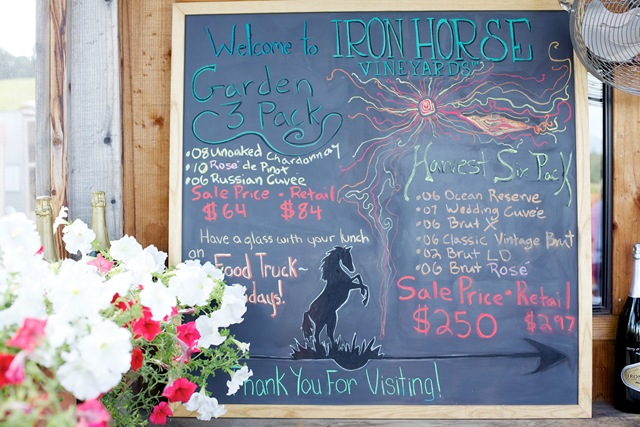 Welcome to IRON HORSE
VINEYARDS
Garden
3 Pack
• 08 Unoaked Chardonnay
• 10 Rosé de Pinot
• 06 Russian Cuveé
Sale Price • Retail
$64 $84
Have a glass with your lunch
on
Food Truck~
days!
Harvest Six Pack
• 06 Ocean Reserve
• 07 Wedding Cuveé
• 06 Brut X
• 06 Classic Vintage Brut
• 02 Brut LD
• 06 Brut Rosé
Sale Price • Retail
$250 $297
Thank You For Visiting!